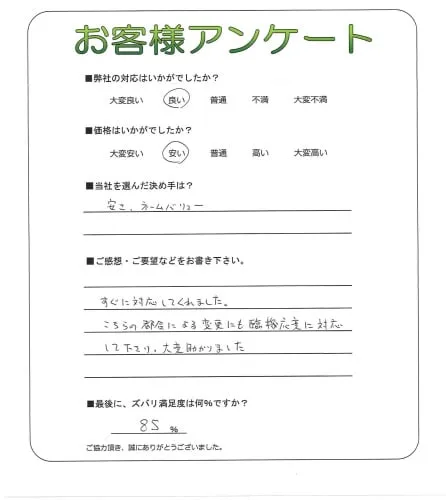 お客様アンケート
■弊社の対応はいかがでしたか？
大変良い 良い 普通 不満 大変不満
■価格はいかがでしたか？
大変安い 安い 普通 高い 大変高い
■当社を選んだ決め手は？
安さ、ネームバリュー
■ご感想・ご要望などをお書き下さい。
すぐに対応してくれました。
こちらの都合による変更にも臨機応変に対応
して下さり、大変助かりました
■最後に、ズバリ満足度は何%ですか？
85 %
ご協力頂き、誠にありがとうございました。